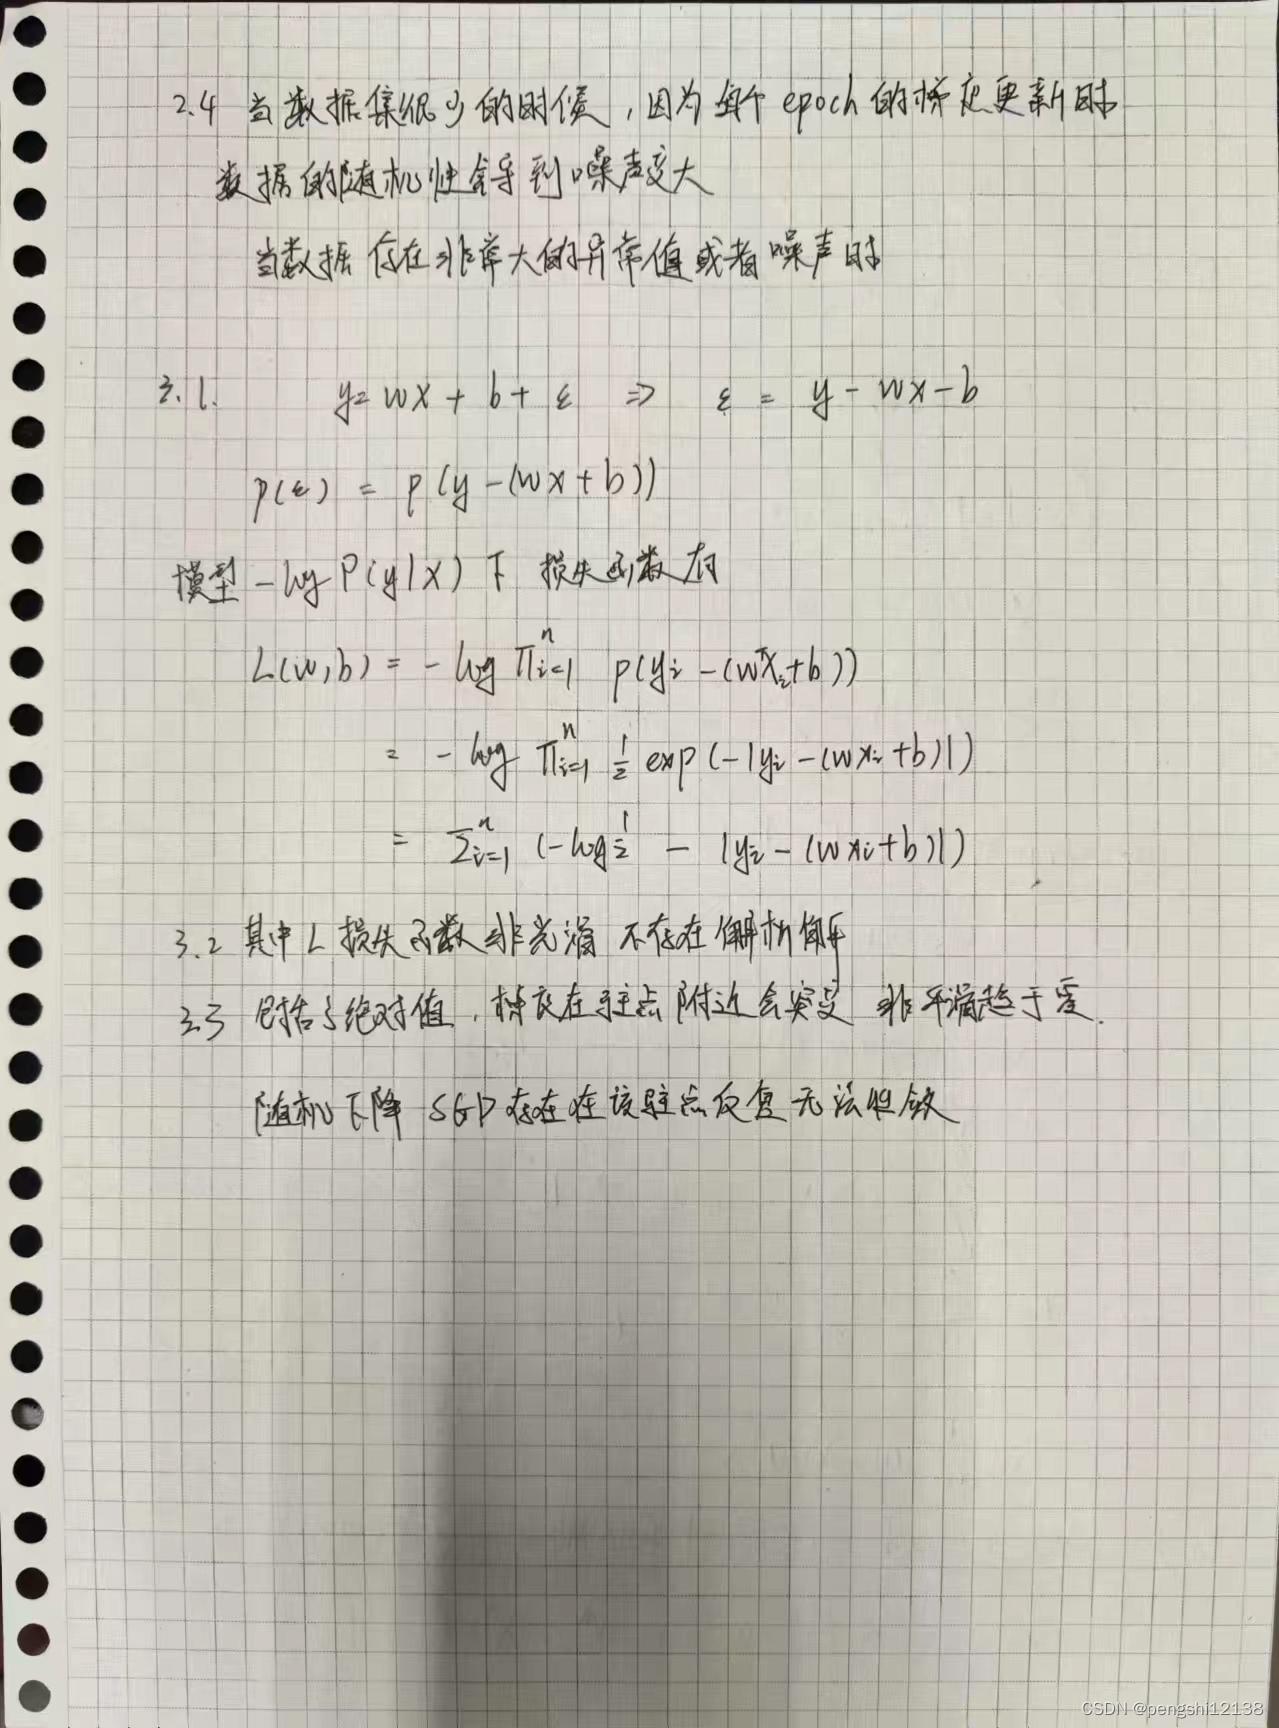 2.4 当数据集很少的时候，因为每个 epoch 的梯度更新时
数据的随机性会导到噪声变大
当数据存在非常大的异常值或者噪声时
3.1. y = wx + b + ε ⇒ ε = y - wx - b
p(ε) = p(y - (wx + b))
模型 - log P(y|x) 下 损失函数有
L(w,b) = - log ∏ⁿᵢ₌₁ p(yᵢ - (wᵀxᵢ + b))
= - log ∏ⁿᵢ₌₁ ½ exp(-|yᵢ - (wxᵢ + b)|)
= Σⁿᵢ₌₁ (-log ½ - |yᵢ - (wxᵢ + b)|)
3.2 其中 L 损失函数非光滑 不存在解析解
3.3 包括了绝对值，梯度在驻点附近会突变 非平滑趋于零.
随机下降 SGD 存在在该驻点反复无法收敛
CSDN @pengshi12138